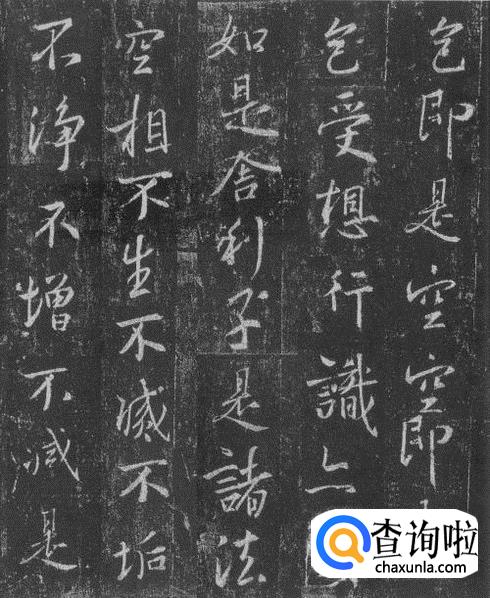 色即是空空即
色受想行識亦
如是舍利子是諸法
空相不生不滅不垢
不淨不增不減是
查询啦
chaxunla.com